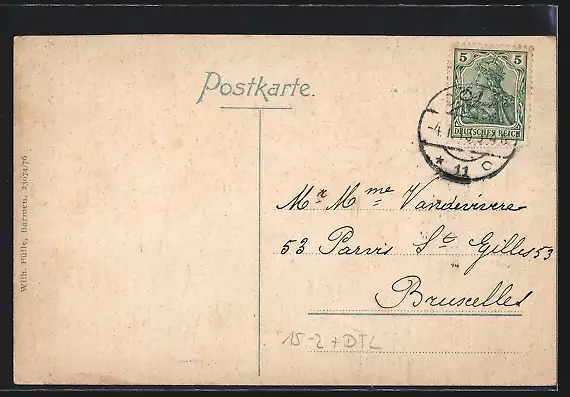 Postkarte.
5 5
DEUTSCHES REICH
* 11 c
Mr Mme Vandevivere
53 Parvis St Gilles 53
Bruxelles
15-2 + DTL
Wilh. Fülle, Barmen. 23074/76